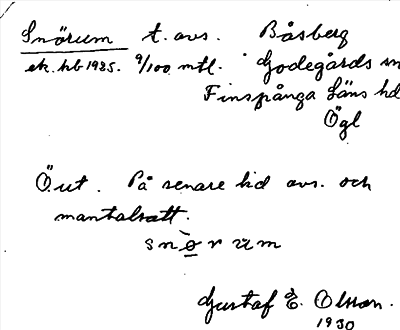 Snörum t. avs. Båsberg
ek. hb 1925. 9/100 mtl. Godegårds sn
Finspånga Läns hd
Ögl
Öut. På senare tid avs. och
mantalsatt.
snørum
Gustaf E. Olsson.
1930